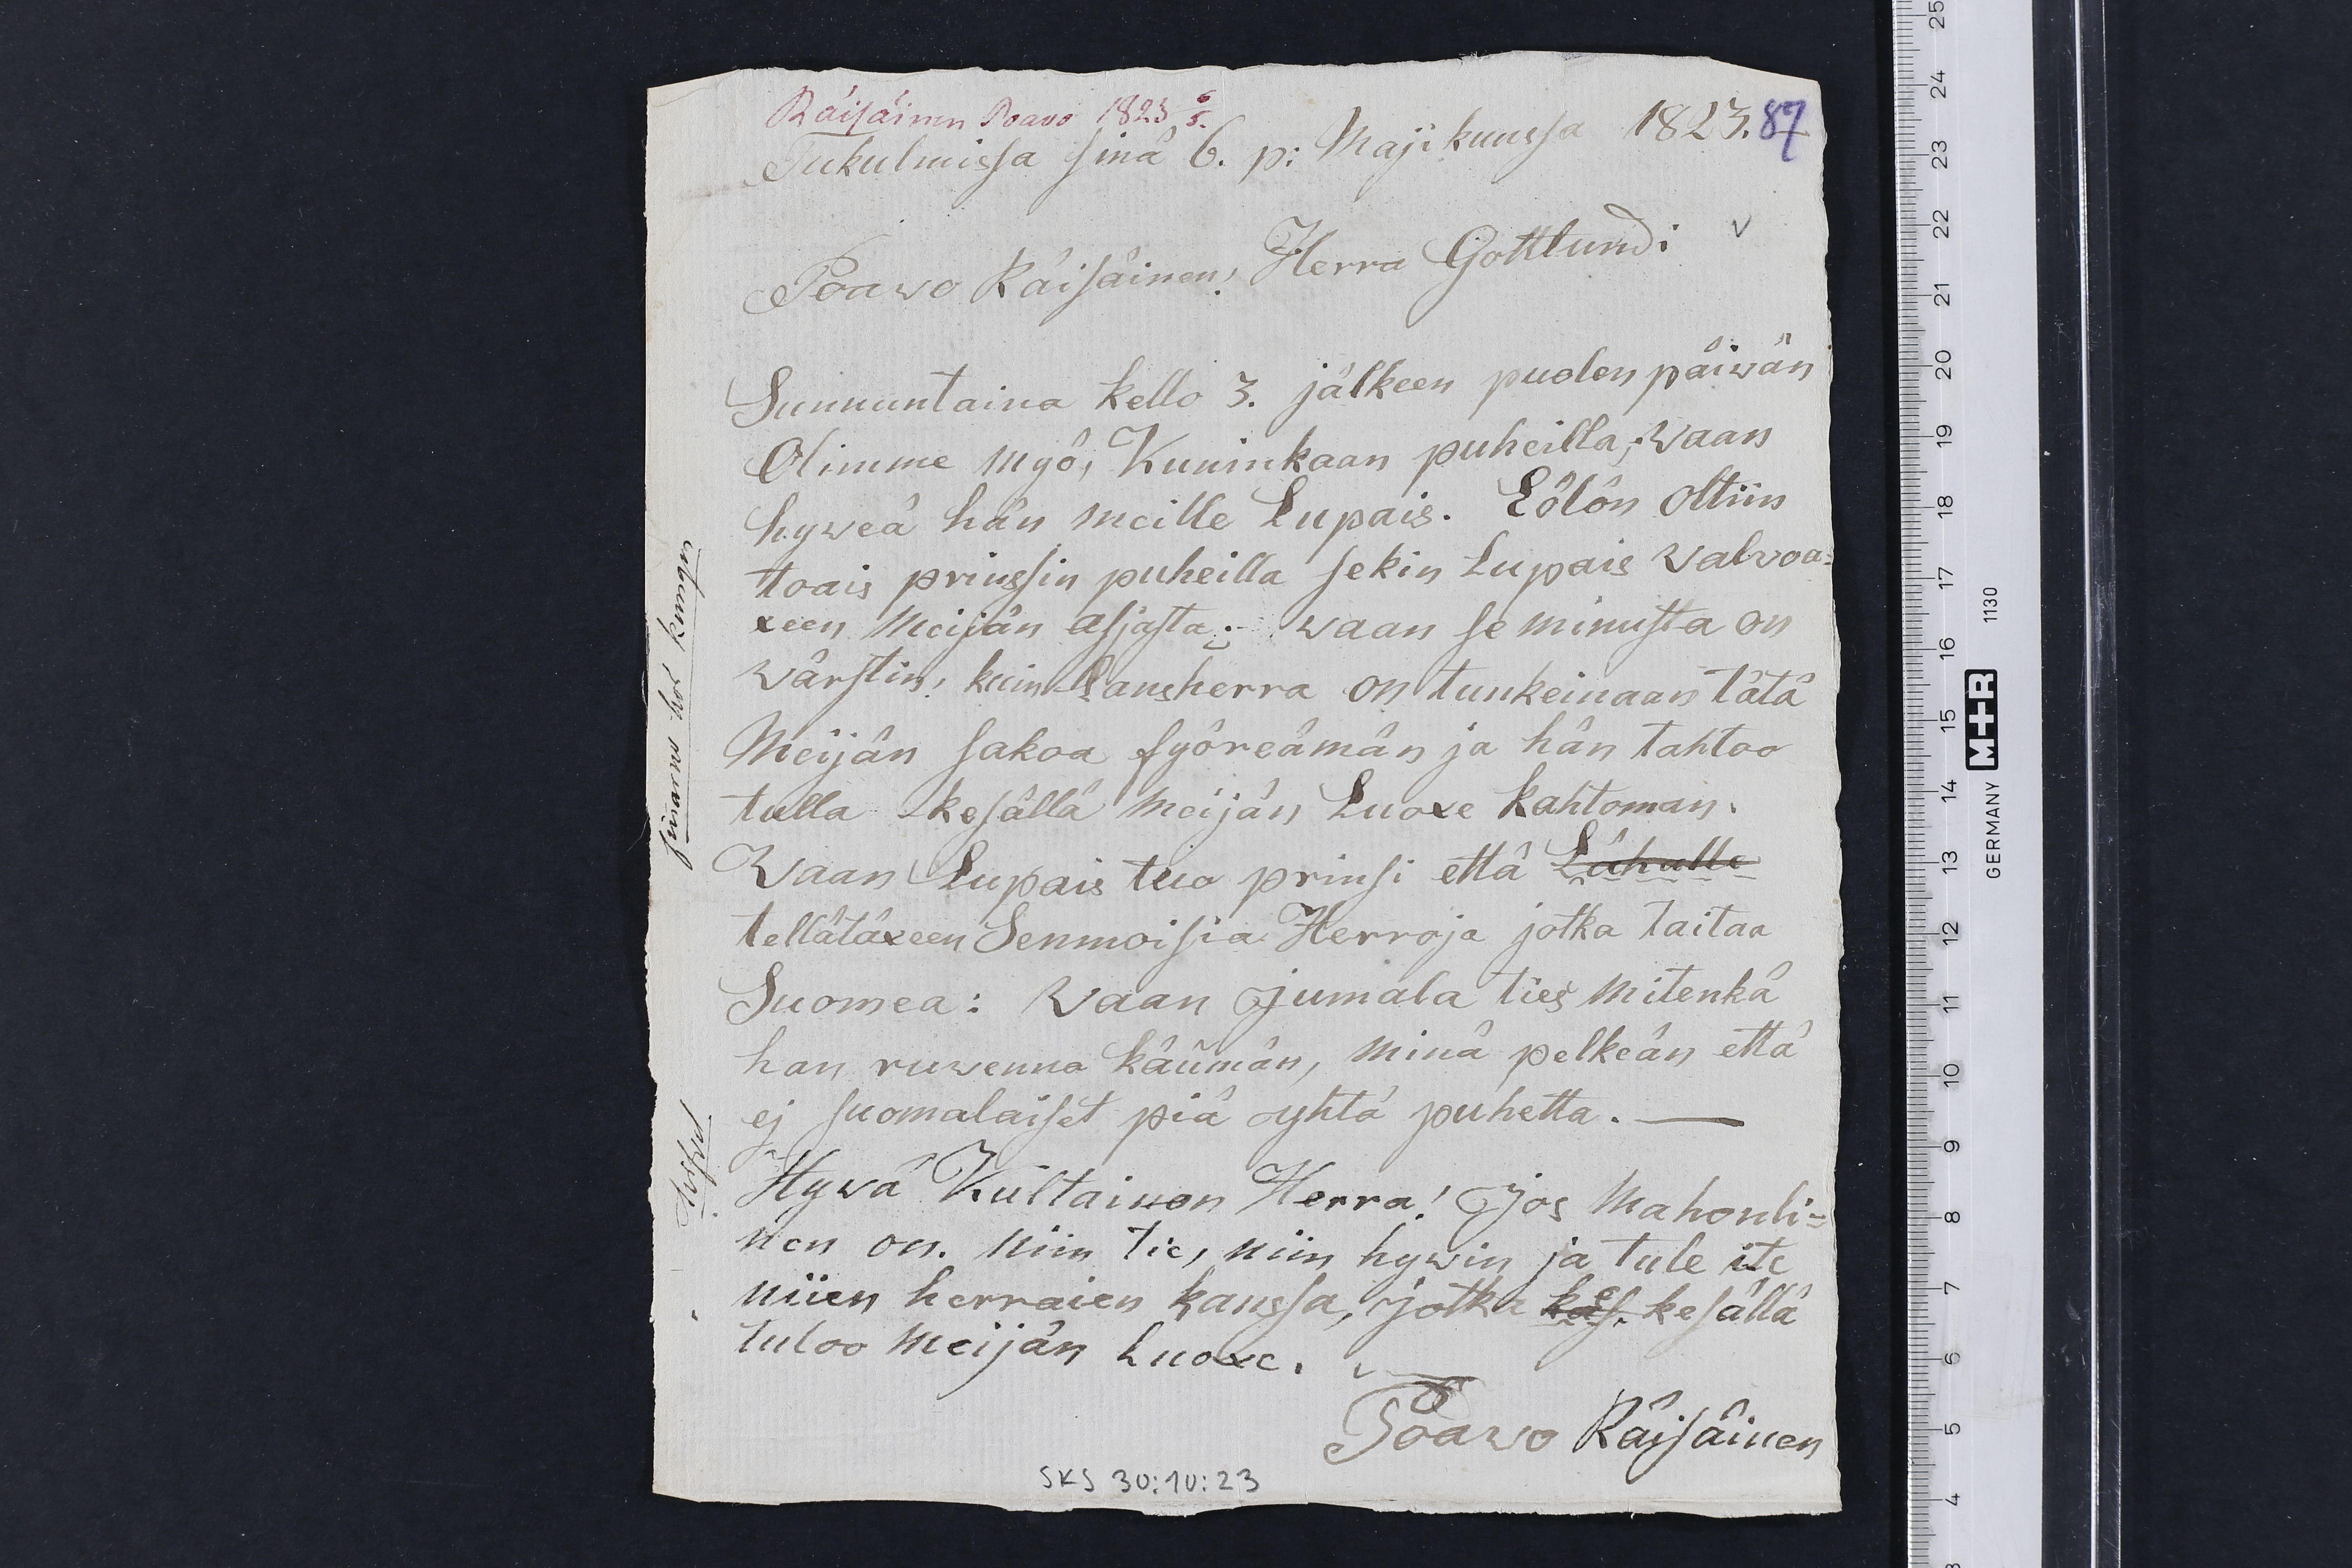 Räisäinen Poavo 1823 6/5.
Tukulmissa sinä 6. p: Majikuussa 1823. 87
Poawo Räisäinen! Herra Gottlundi
Sunnuntaina kello 3. jälkeen puolen päiwän
Olimme myö, Kuninkaan puheilla, waan
hyweä hän meille Lupais. Eölön oltiin
toais prinssin puheilla sekin Lupais walvoa-
xeen meijän asjasta; waan se minusta on
wärstin! kuin Lansherra on tunkeinaan tätä
Meijän sakoa syöreämän ja hän tahtoo
tulla kesällä meijän Luoxe kahtoman.
Waan Lupais tuo prinsi että Lähulle
tellätäxeen Senmoisia Herroja jotka taitaa
Suomea: waan Jumala ties mitenkä
han ruwenno käümän, minä pelkeän että
ej suomalaiset piä yhtä puhetta. —
Hywä Kultainen Herra! Jos Mahonli=
nen on. niin tie, niin hywin ja tule ite
niien herraien kanssa, jotka kes. kesällä
tuloo Meijän Luoxe.
Poawo Räisäinen
SKS 30:10:23
finarne hos kungen
M+R
GERMANY 1130
25
24
23
22
21
20
19
18
17
16
15
14
13
12
11
10
9
8
7
6
5
4